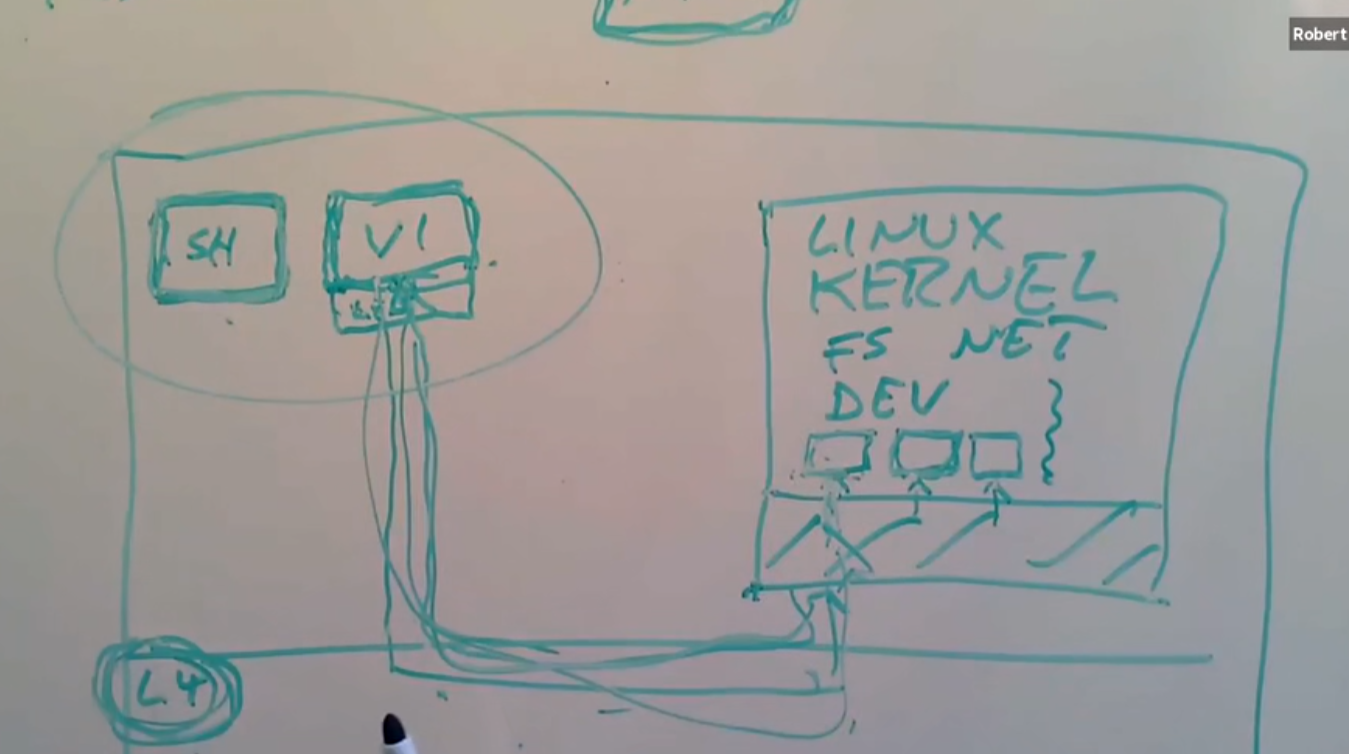 Robert
SH
VI
LINUX
KERNEL
FS NET
DEV
L4